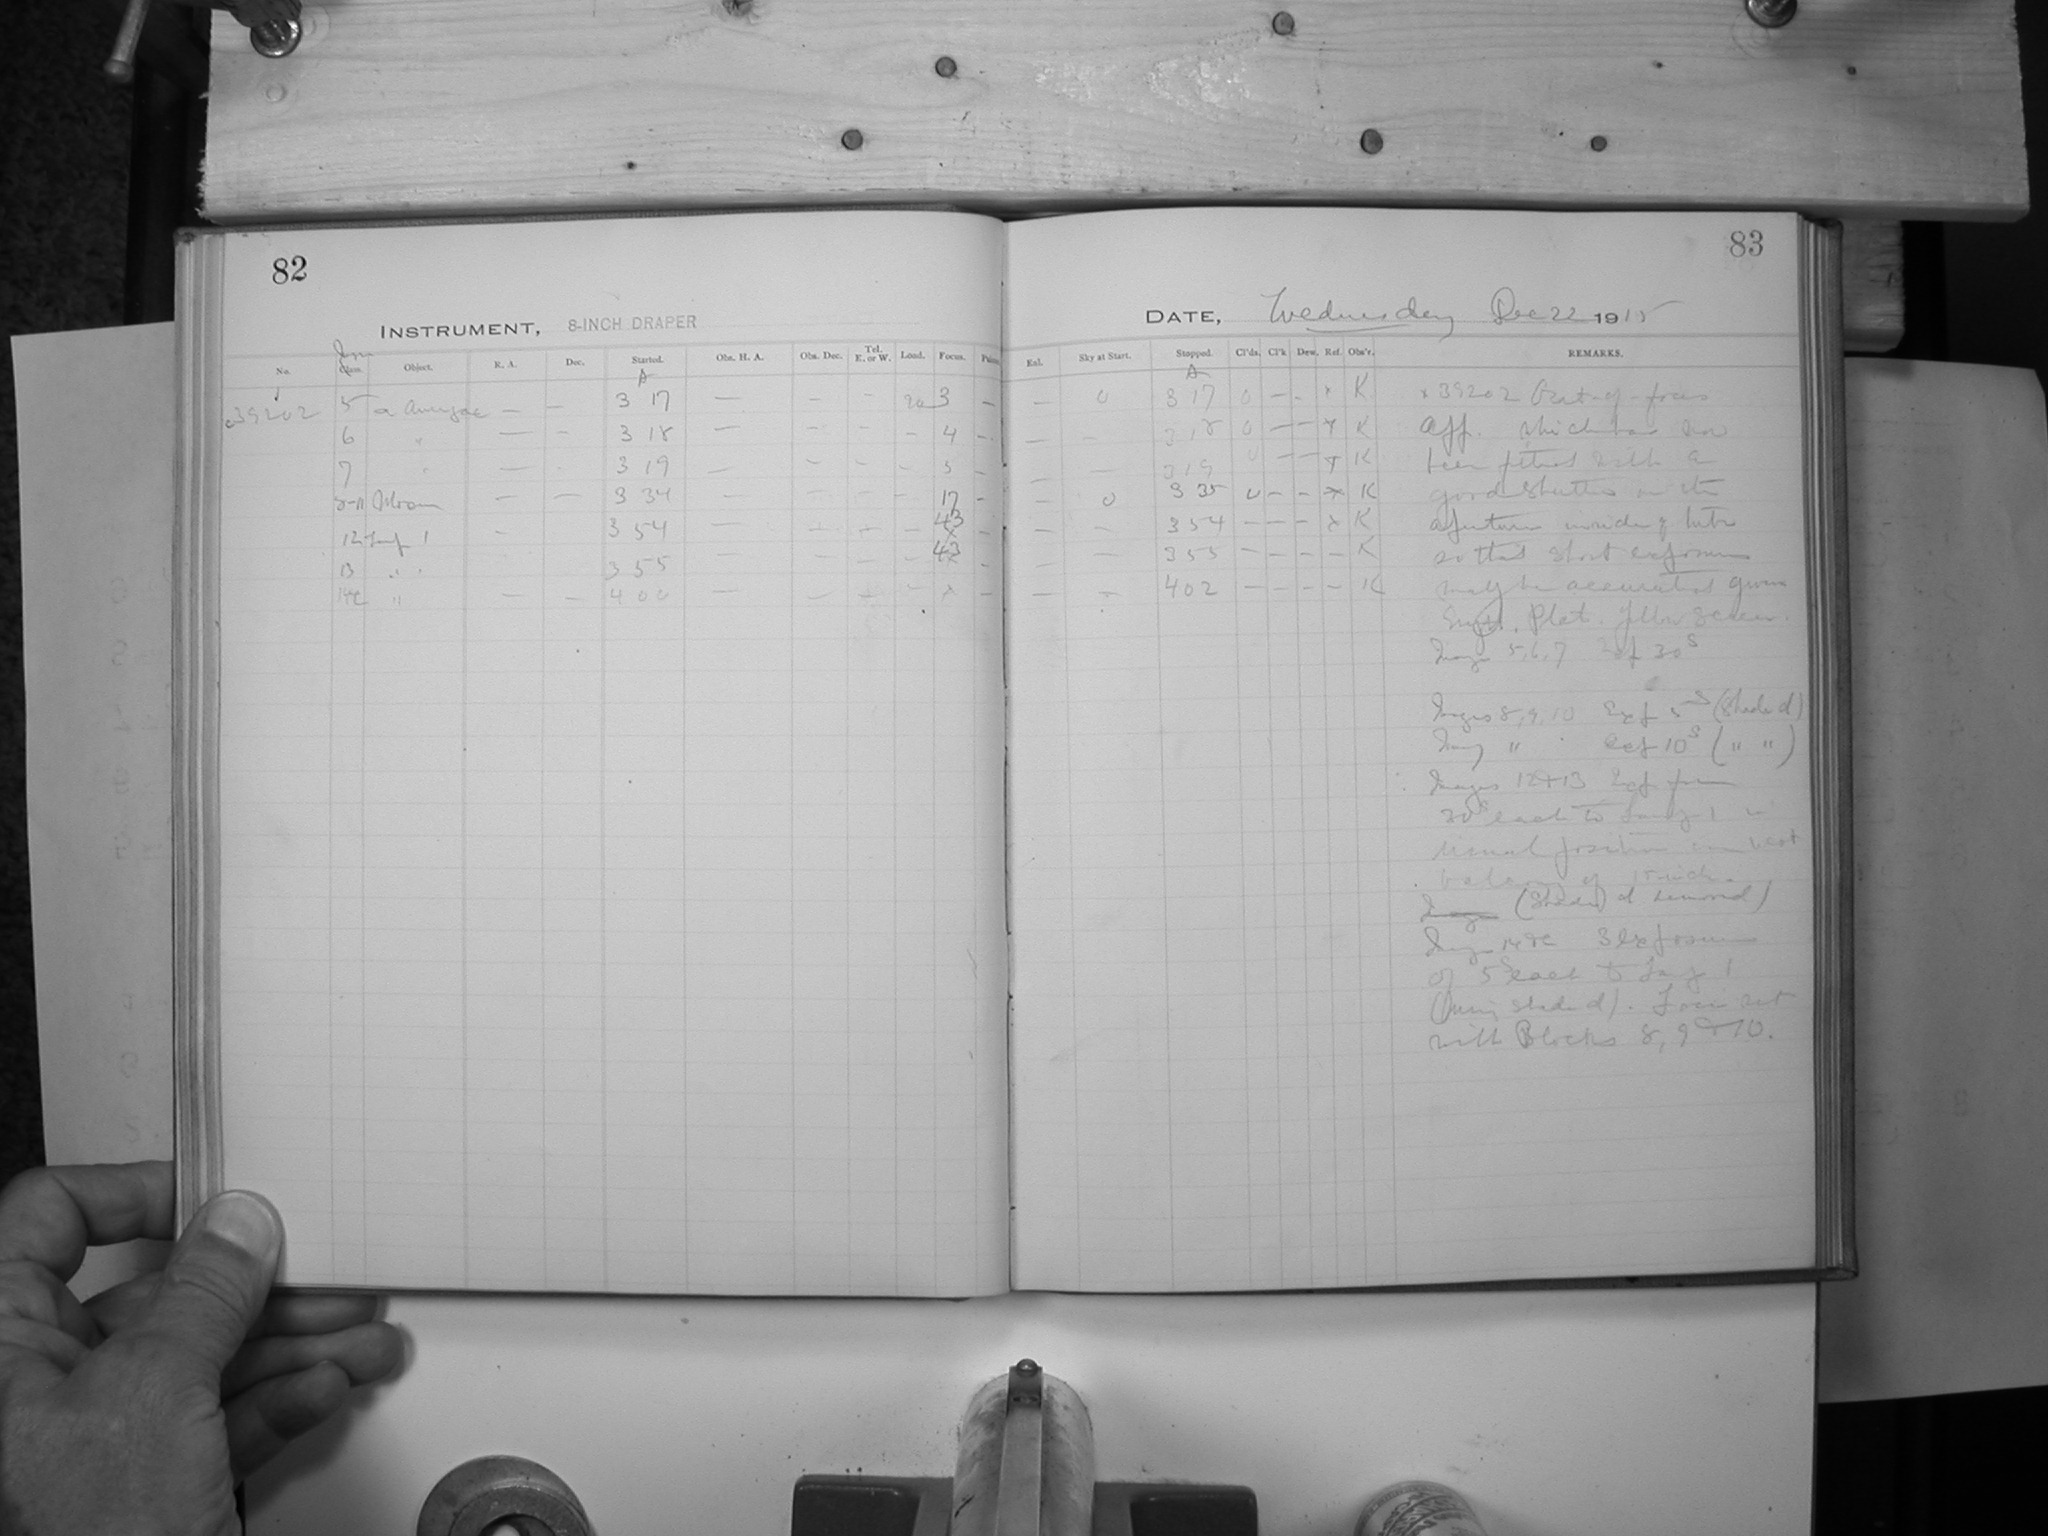 82
INSTRUMENT, 8-INCH DRAPER
No. Class. Object. R. A. Dec. Started. Obs. H. A. Obs. Dec. Tel. E. or W. Load. Focus.
A
39202 5 α Aurigae — — 3 17 — — — 20 3 —
6 " — — 3 18 — — — — 4 —
7 " — 3 19 — — — — 5 —
8-11 Moon — — 3 34 — — — — 17 —
12 1 — 3 54 — 43
13 " " 3 55 — 43
" — — 4 00 — — x —
83
DATE, Wednesday Dec 22 1915
Ral. Sky at Start. Stopped. Cl'ds. Cl'k Dew. Ref. Obs'r. REMARKS.
A
— 0 3 17 0 — - x K
— — 3 18 0 — — x K
— — 3 19 0 — — x K
— 0 3 35 0 — — x K
— — 3 54 — — — x K
— — 3 55 — — — K
— — 4 02 — — — — K
x 39202 Out-of-focus
app. which has now
been fitted with a
good shutter on the
aperture inside of tube
so that short exposures
may be accurately given
Plate. Yellow Screen.
Images 5, 6, 7 Exp 30s
Images 8, 9, 10 Exp 5s (Shaded)
Image 11 Exp 10s (" ")
Images 12 + 13 Exp. from
30s each to 1 in
usual position on west
balance of 15-inch.
(Shaded removed)
3 exposures
of 5s each to 1
(Being shaded). Focus set
with Blocks 8, 9 & 10.